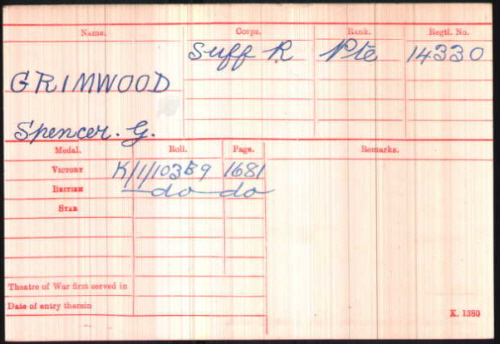 Name. Corps. Rank. Regtl. No.
Suff R Pte 14330
GRIMWOOD
Spencer. G.
Medal. Roll. Page. Remarks.
VICTORY K/1/103B9 1681
BRITISH —do— do
STAR
Theatre of War first served in
Date of entry therein
K. 1380